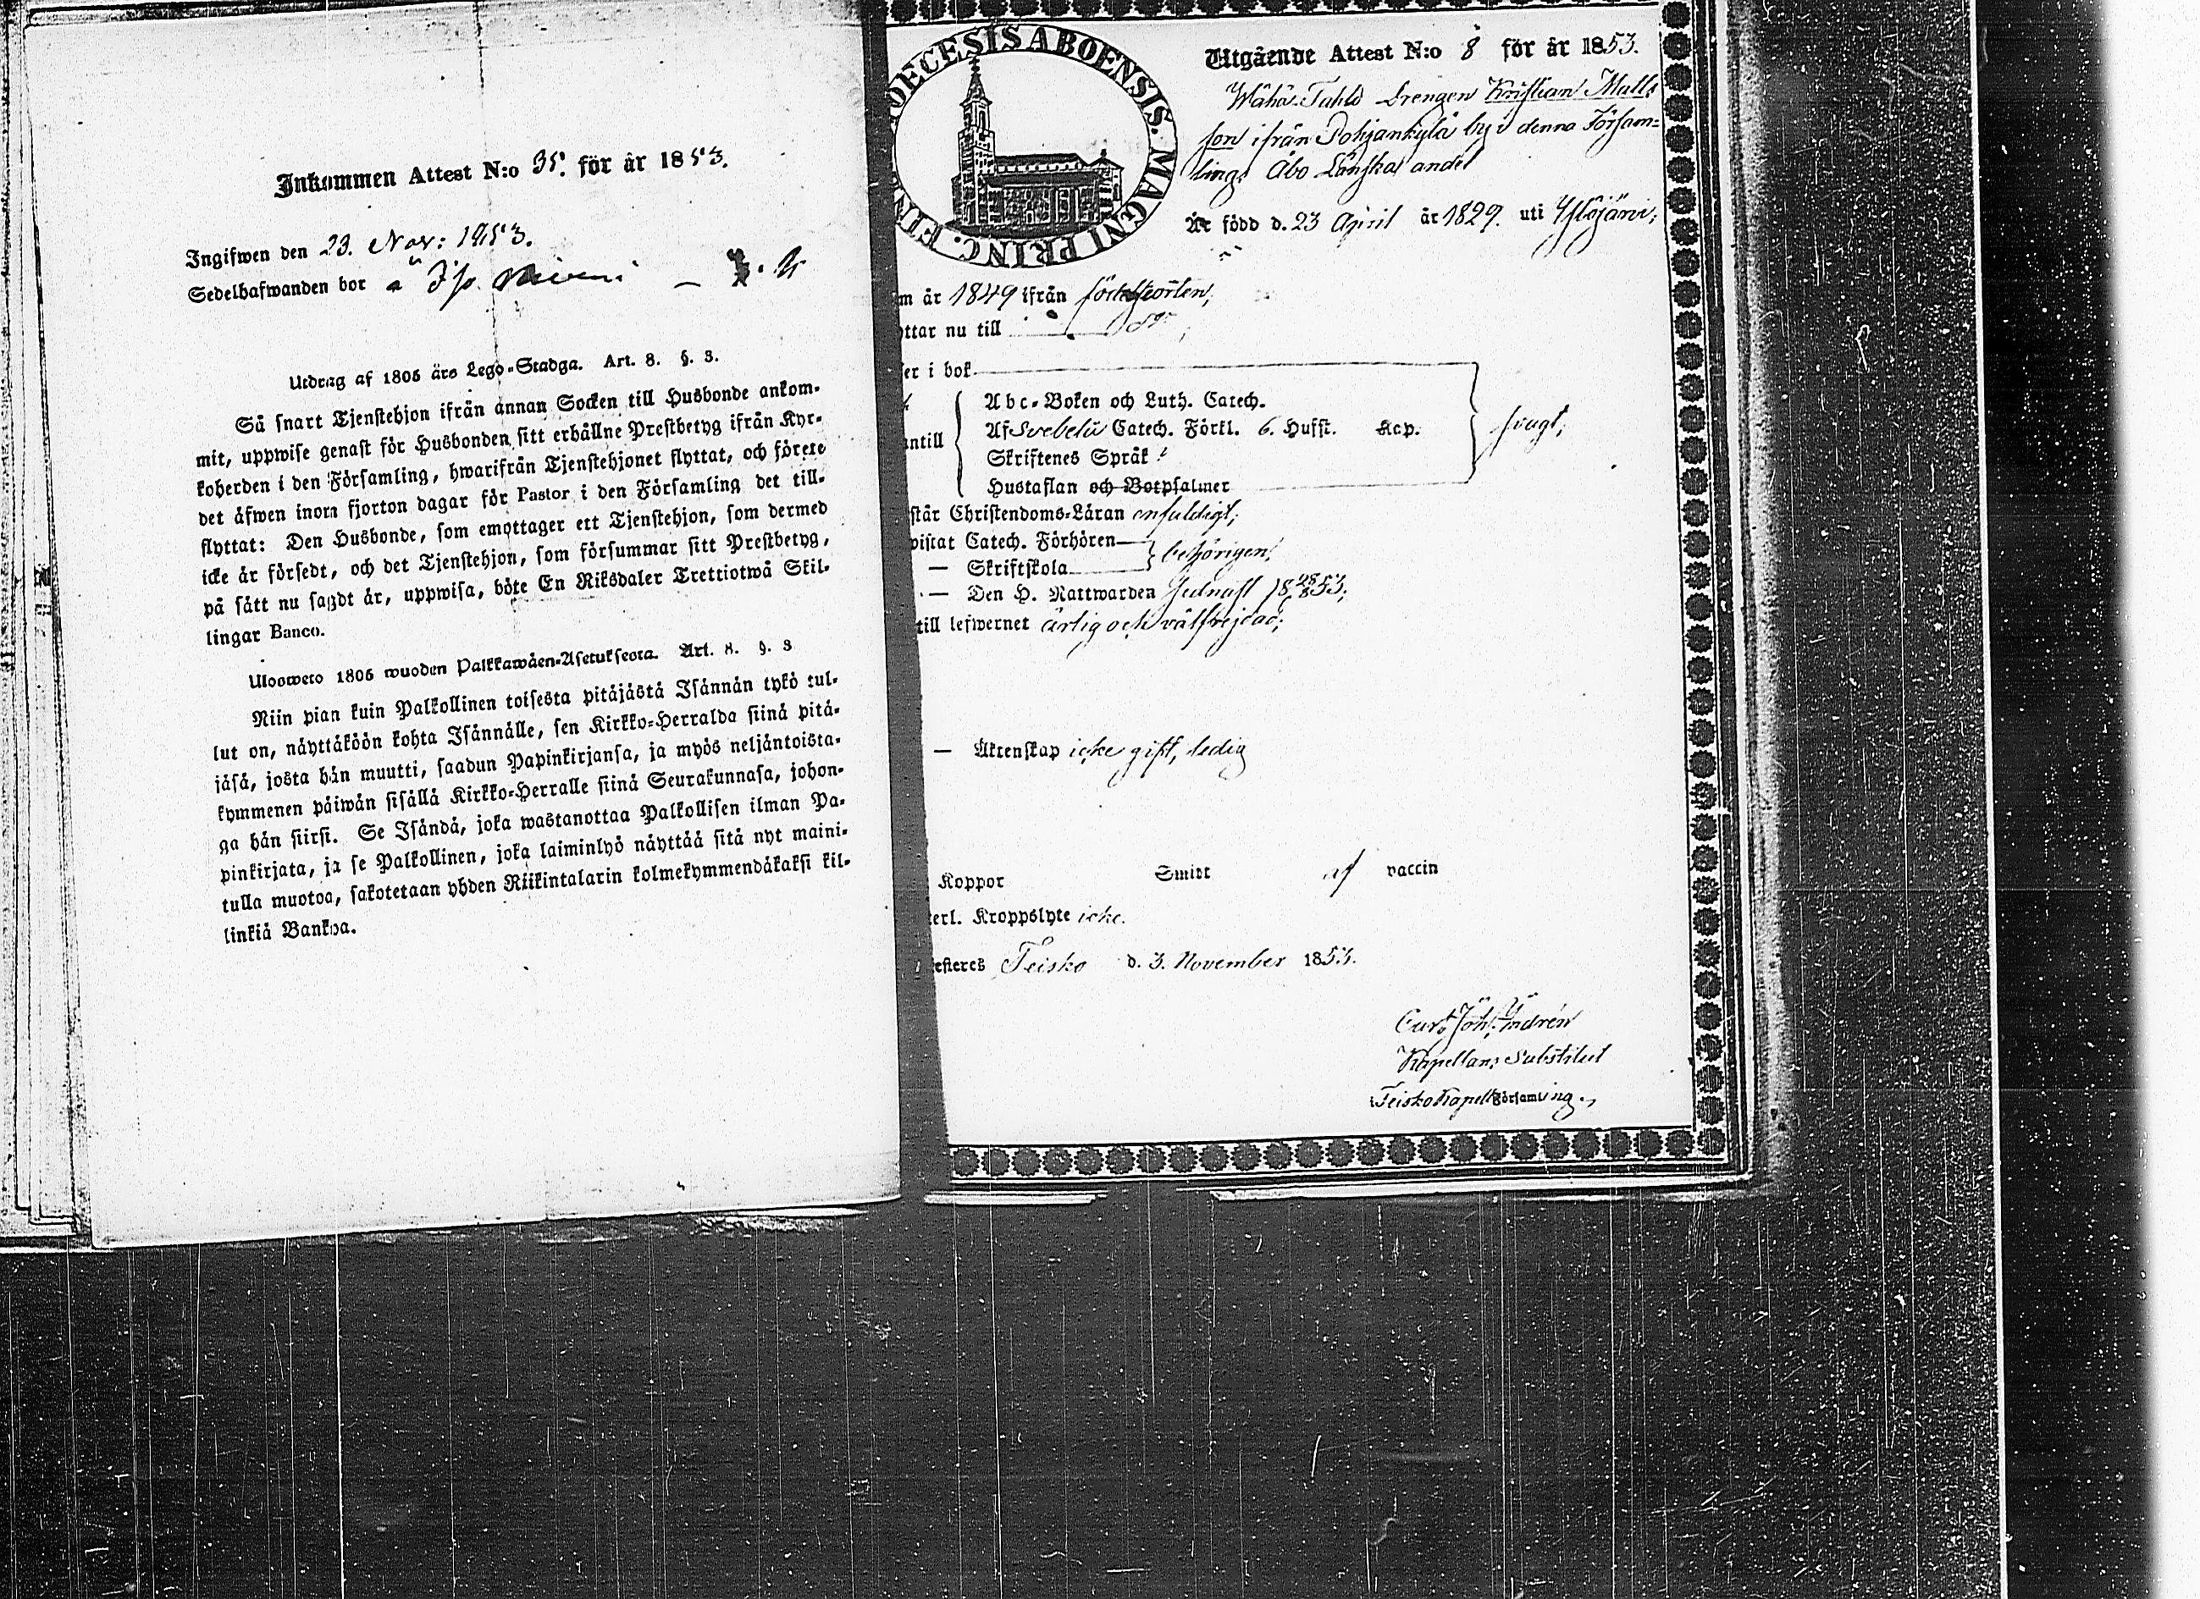 Inkommen Attest N:o 35. för år 1853.
Ingifwen den 23. Nov: 1853.
Sedelhafwanden bor å
Utdrag af 1805 års Lego-Stadga. Art. 8. §. 3.
Så snart Tjenstehjon ifrån annan Socken till Husbonde ankom-
mit, uppwise genast för Husbonden sitt erhållne Prestbetyg ifrån Kyr-
koherden i den Församling, hwarifrån Tjenstehjonet flyttat, och förete
det äfwen inom fjorton dagar för Pastor i den Församling det till-
flyttat: Den Husbonde, som emottager ett Tjenstehjon, som dermed
icke är försedt, och det Tjenstehjon, som försummar sitt Prestbetyg,
på sätt nu sagdt är, uppwisa, böte En Riksdaler Trettiotwå Skil-
lingar Banco.
Ulosweto 1805 wuoden Palkkawäen-Asetuksesta. Art. 8. §. 3
Niin pian kuin Palkollinen toisesta pitäjästä Isännän tykö tul-
lut on, näyttäköön kohta Isännälle, sen Kirkko-Herralda siinä pitä-
jäsä, josta hän muutti, saadun Papinkirjansa, ja myös neljäntoista-
kymmenen päiwän sisällä Kirkko-Herralle siinä Seurakunnasa, johon-
ga hän siirsi. Se Isändä, joka wastanottaa Palkollisen ilman Pa-
pinkirjata, ja se Palkollinen, joka laiminlyö näyttää sitä nyt maini-
tulla muotoa, sakotetaan yhden Riikintalarin kolmekymmendäkaksi kil-
linkiä Bankoa.
DIOECESIS ABOENSIS. MAGNI PRINC. FIN
Utgående Attest N:o 8 för år 1853.
Wähä-Tahlo Drengen Kristian Matts
son ifrån Pohjankylä by i denna Försam=
lings Åbo Länska andel
Är född d. 23 April år 1829. uti Ylöjärvi,
m år 1849 ifrån födelseorten,
ttar nu till
er i bok
ntill
Abc-Boken och Luth. Catech.
Af Svebelii Catech. Förkl. 6. Hufst. Kap.
Skriftenes Språk
Hustaflan och Botpsalmer
svagt,
står Christendoms-Läran enfaldigt,
vistat Catech. Förhören
— Skriftskola
behörigen,
— Den H. Nattwarden sednast 18 28/8 53,
till lefwernet ärlig och välfrejdad,
— Äktenskap icke gift, ledig
Koppor Smitt af vaccin
terl. Kroppslyte icke.
esteres Teisko d. 3. November 1853.
Kapellans Substitut
Teisko Kapell Församling.